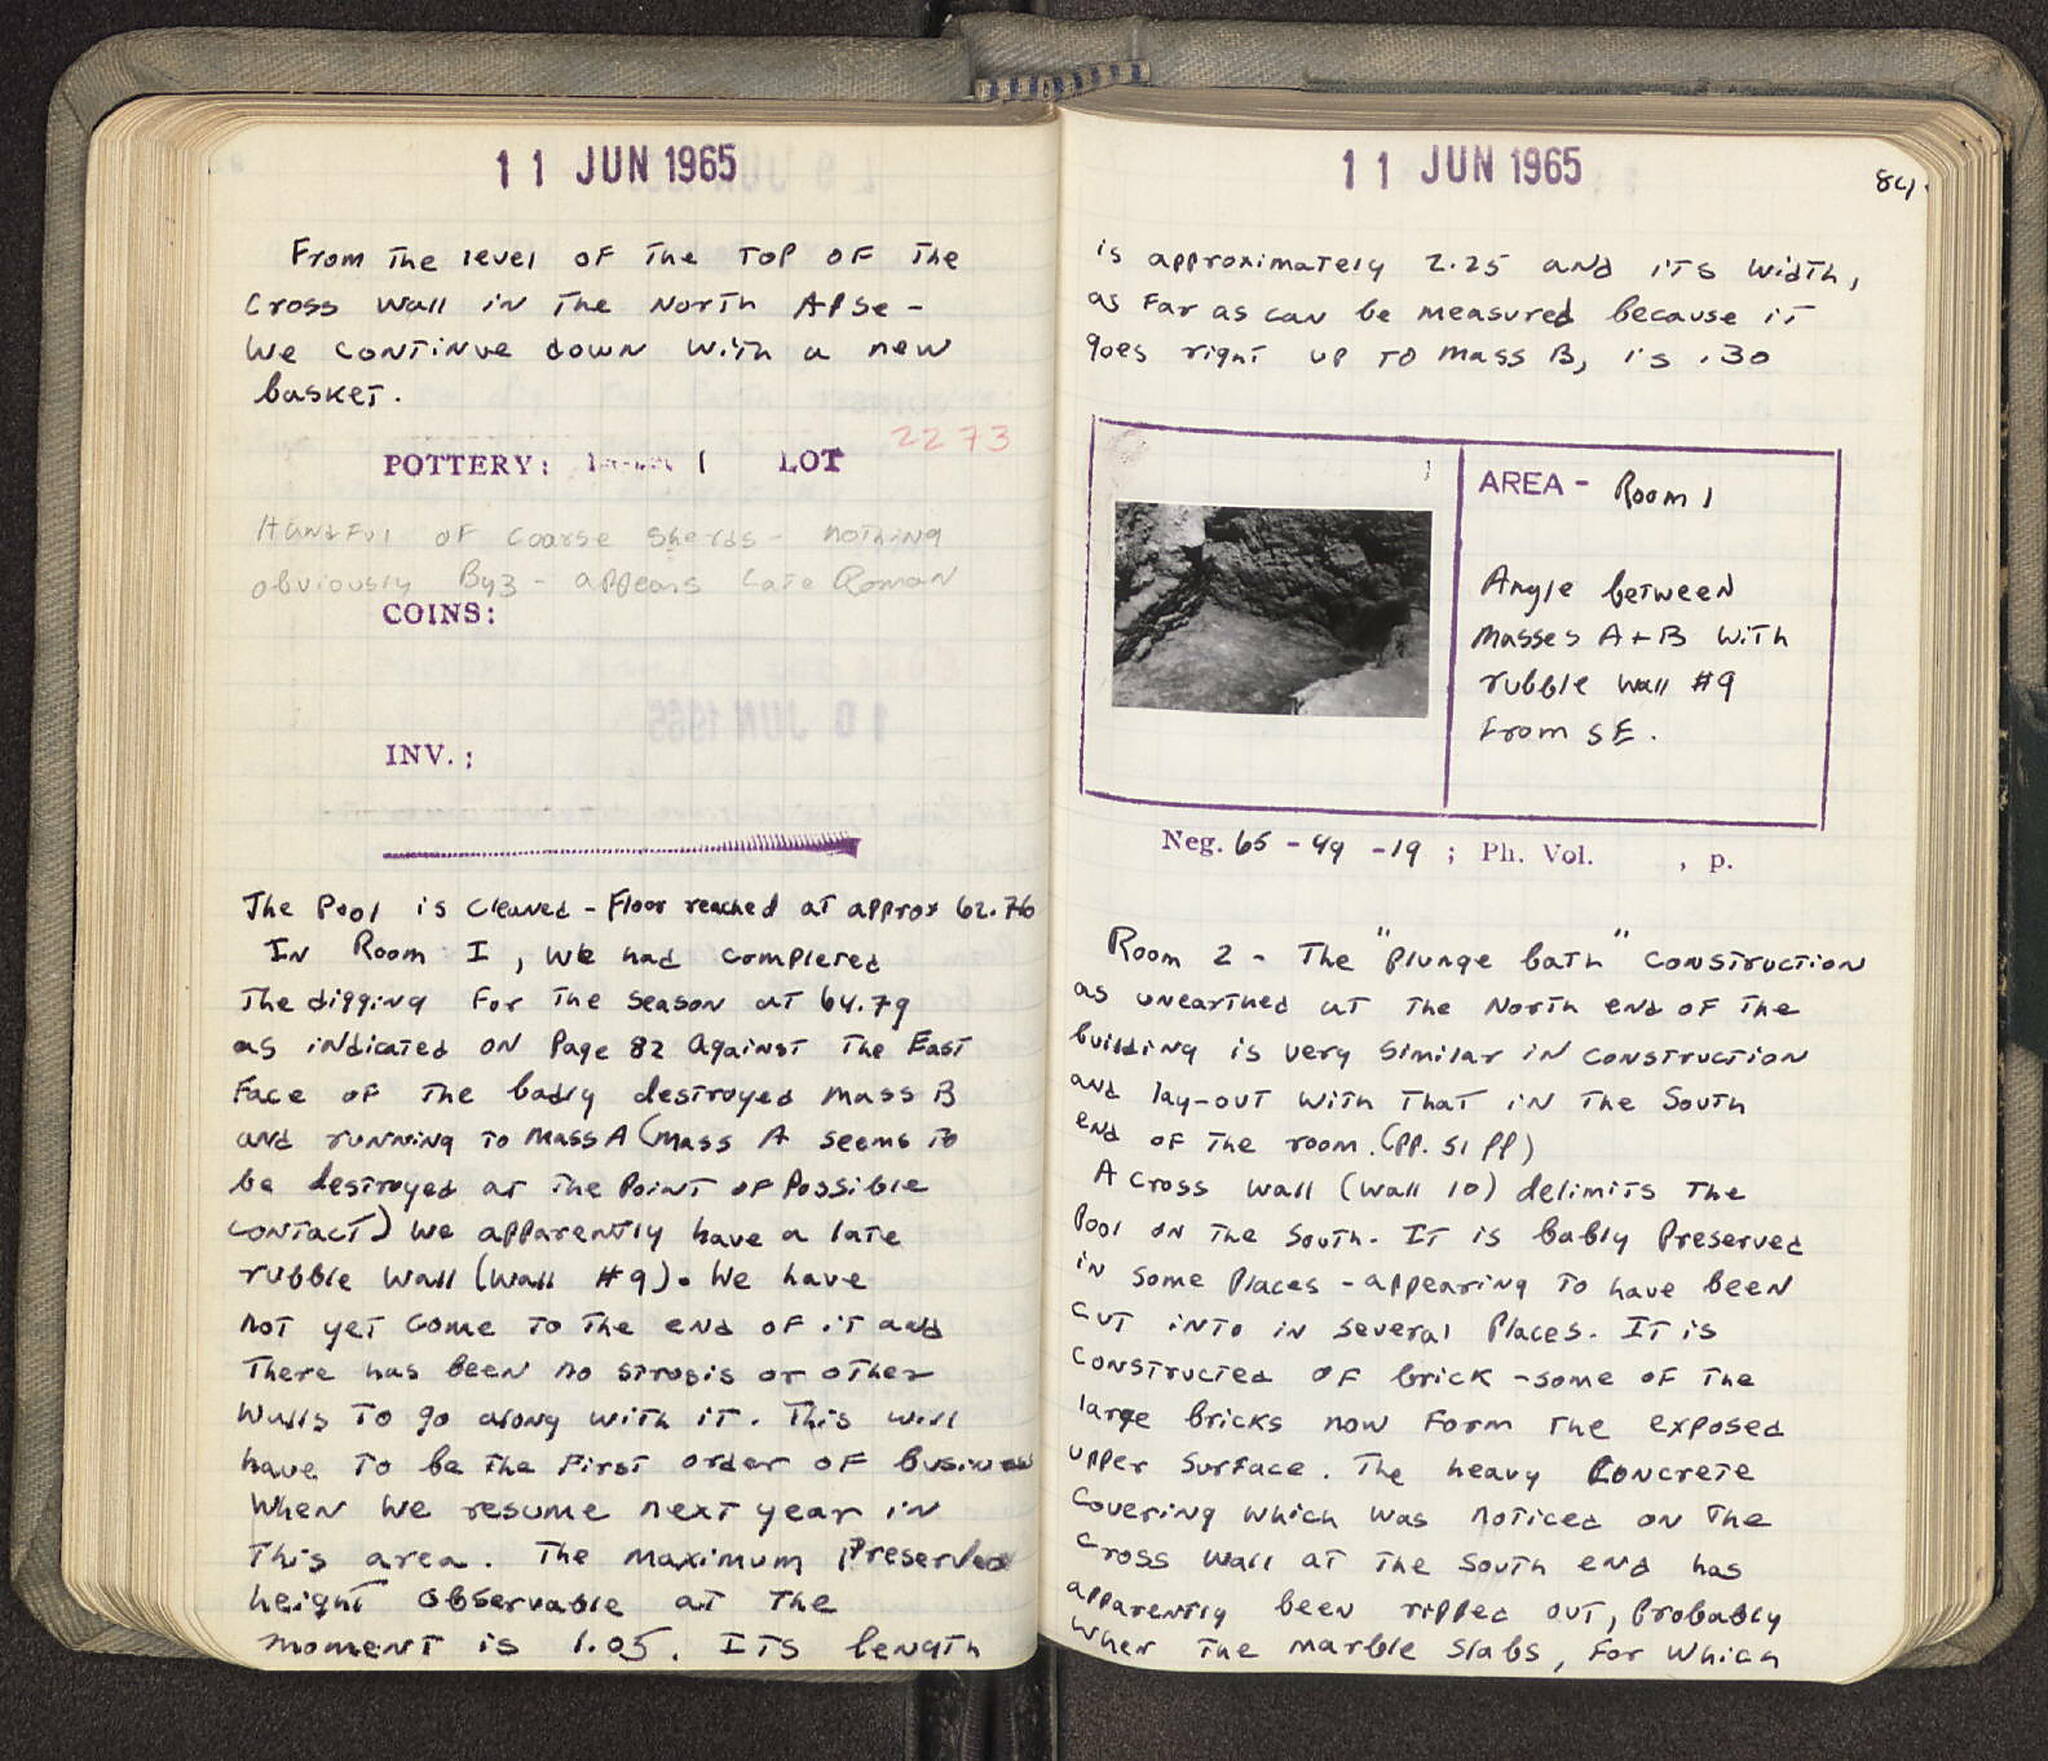 11 JUN 1965
From the level of the top of the
Cross wall in the North Apse -
We continue down with a new
basket.
2273
POTTERY: 1 LOT
Handful of coarse sherds - nothing
obviously Byz - appears Late Roman
COINS:
INV.:
The Pool is cleaned - Floor reached at approx 62.76
In Room I, we had completed
the digging for the season at 64.79
as indicated on Page 82 Against the East
Face of the badly destroyed Mass B
and running to Mass A (Mass A seems to
be destroyed at the Point of Possible
contact) We apparently have a late
rubble wall (wall #9). We have
not yet come to the end of it and
there has been no strosis or other
walls to go along with it. This will
have to be the first order of business
when we resume next year in
this area. The maximum Preserved
height observable at the
moment is 1.05. Its length
11 JUN 1965
84.
is approximately 2.25 and its width,
as far as can be measured because it
goes right up to Mass B, is .30
AREA - Room 1
Angle between
Masses A + B with
rubble wall #9
from SE.
Neg. 65 - 49 - 19 ; Ph. Vol. , p.
Room 2 - The "plunge bath" construction
as unearthed at the North end of the
building is very similar in construction
and lay-out with that in the South
end of the room. (pp. 51 ff)
A Cross wall (wall 10) delimits the
Pool on the South. It is bably Preserved
in some Places - appearing to have been
cut into in several Places. It is
constructed of brick - some of the
large bricks now form the exposed
upper surface. The heavy concrete
covering which was noticed on the
cross wall at the south end has
apparently been ripped out, probably
when the marble slabs, for which